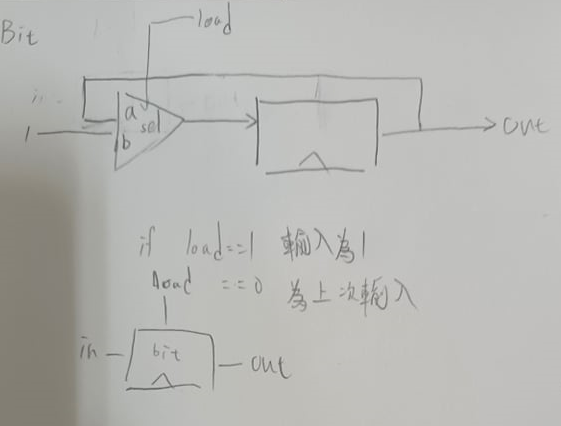 Bit
load
a
sel
b
1
out
if load==1 輸入為1
load ==0 為上次輸入
in
bit
out